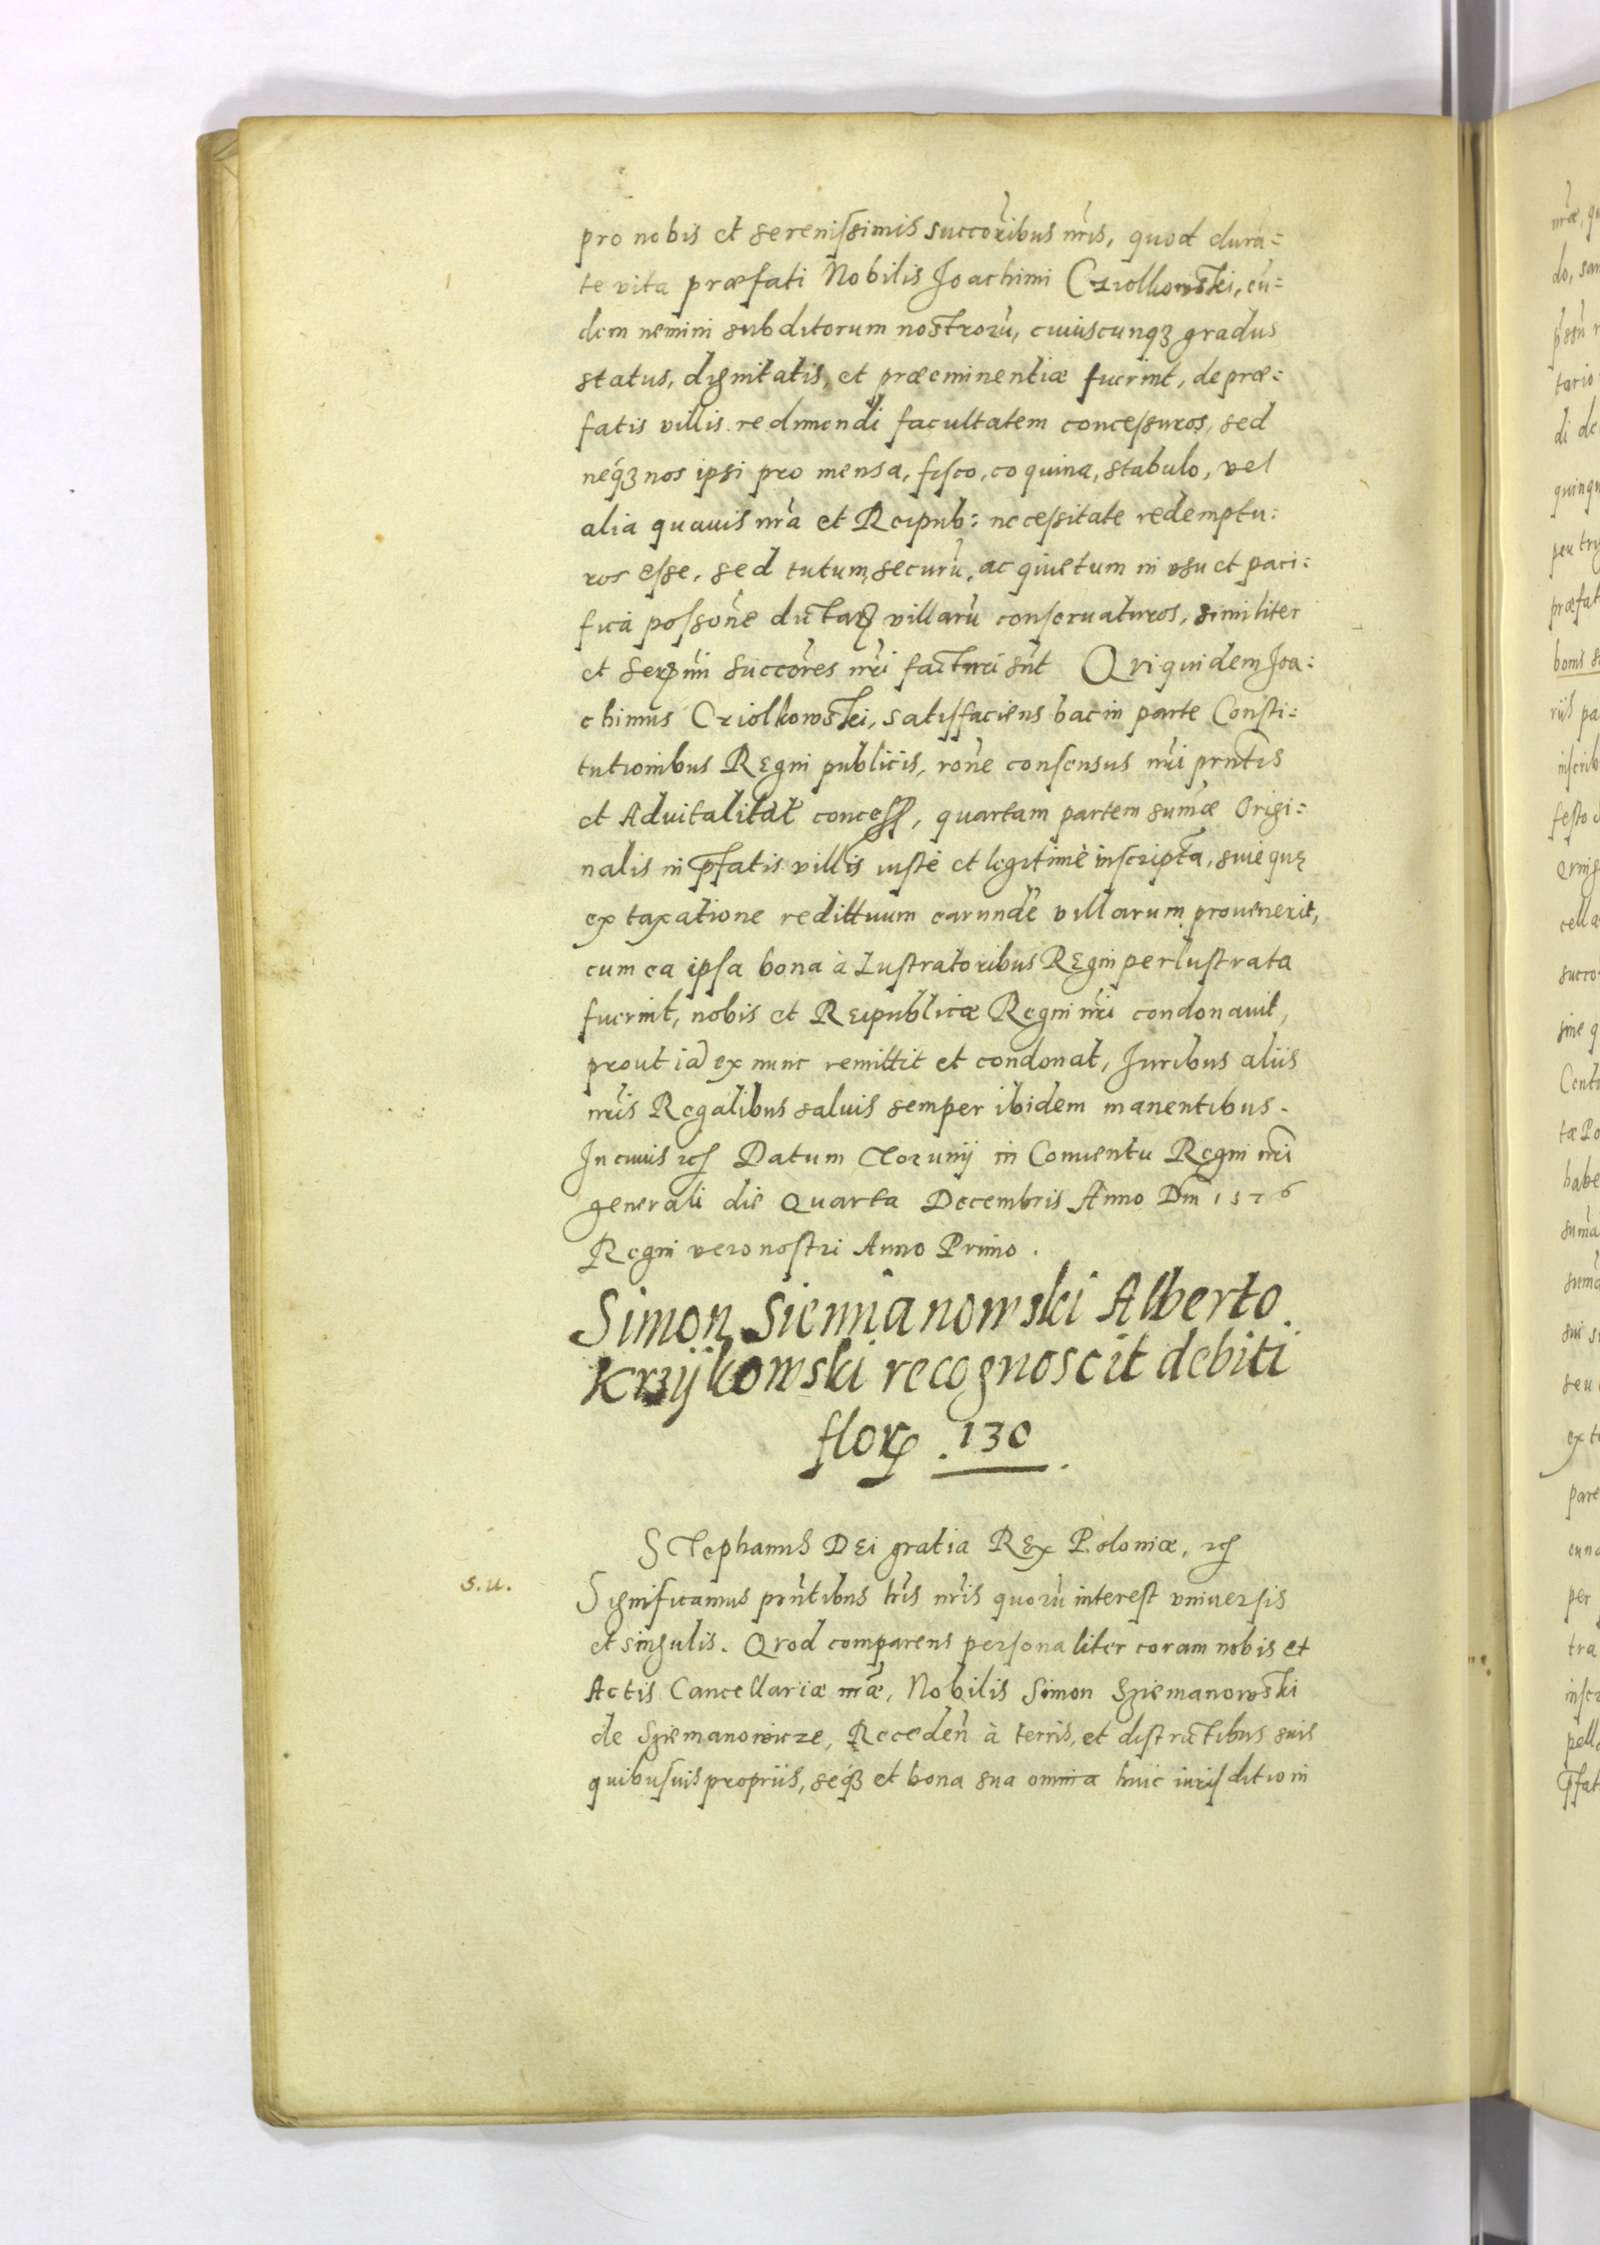 pro nobis et serenissimis succoribus nris, quod durā=
te vita præfati Nobilis Joachimi Cziolkowski, eū=
dem nemini subditorum nostrorū, cuiuscunqꝫ gradus
status, dignitatis, et præeminentiæ fuerint, de præ=
fatis villis redimendi facultatem concessuros, sed
neqꝫ nos ipsi pro mensa, fisco, coquina, stabulo, vel
alia quauis nrā et Reipub: necessitate redemptu:
ros esse, sed tutum, securū, ac quietum in vsu et paci:
fica possoñe dictaꝝ villarū conseruaturos, similiter
et Serꝫmi succores nri facturi sūt Qui quidem Joa:
chimus Cziolkowski, satisfaciens hac in parte Consti=
tutionibus Regni publicis, rōne consensus nri prntis
et Aduitalitat concess, quartam partem sumæ Origi=
nalis in pfatis villis iustè et legitimè inscripta, siue quę
ex taxatione redittuum earundē villarum prouenerit,
cum ea ipsa bona à Lustratoribus Regni perlustrata
fuerint, nobis et Reipublicæ Regni nri condonauit,
prout iā ex nunc remittit et condonat, Juribus aliis
nris Regalibus saluis semper ibidem manentibus.
In cuius rei Datum Torunij in Conuentu Regni nri
generali die Quarta Decembris Anno Dni 1576
Regni vero nostri Anno Primo.
Simon Siemianowski Alberto
Krzijkowski recognoscit debiti
florꝭ .130.
Stephanus Dei gratia Rex Poloniæ, etc
s.u.
Significamus prntibus lris nris quorū interest vniuersis
et singulis. Quod comparens personaliter coram nobis et
Actis Cancellariæ nræ, Nobilis Simon Sziemanowski
de Sziemanowicze, Receden à terris, et districtibus suis
quibusuis propriis, seqꝫ et bona sua omnia huic iurisditioni